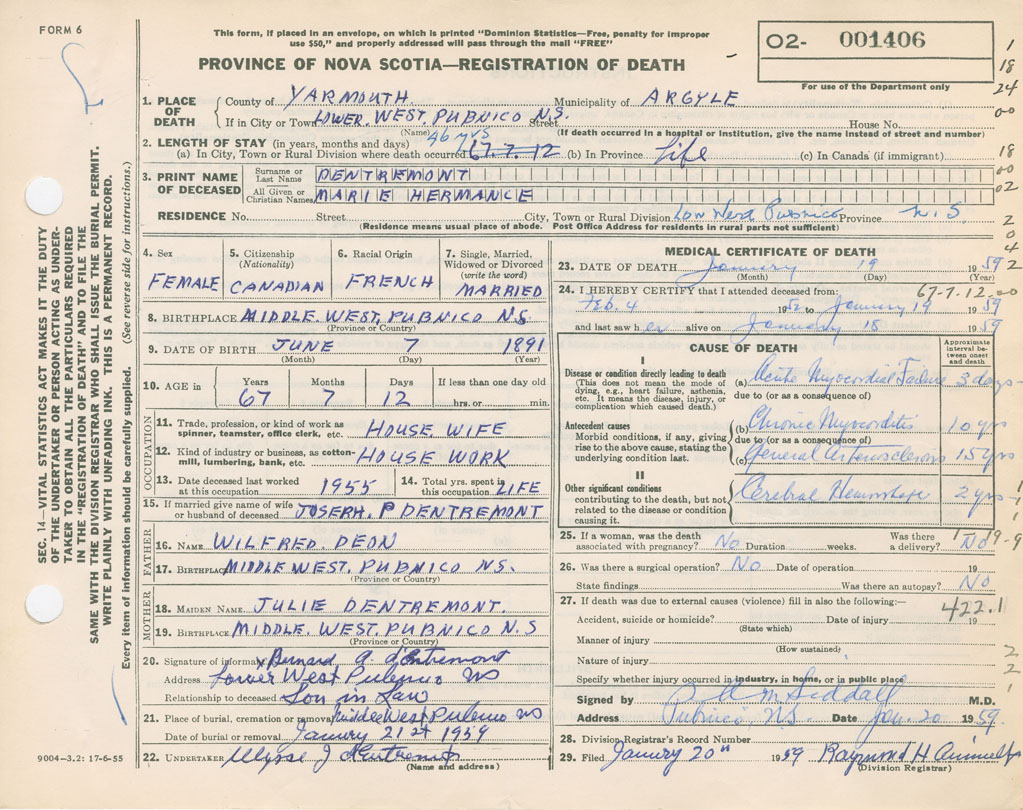 FORM 6
This form, if placed in an envelope, on which is printed "Dominion Statistics—Free, penalty for improper
use $50," and properly addressed will pass through the mail "FREE"
PROVINCE OF NOVA SCOTIA—REGISTRATION OF DEATH
02- 001406
For use of the Department only
1
18
24
00
18
00
02
2
0
4
2
SEC. 14—VITAL STATISTICS ACT MAKES IT THE DUTY
OF THE UNDERTAKER OR PERSON ACTING AS UNDER-
TAKER TO OBTAIN ALL THE PARTICULARS REQUIRED
IN THE "REGISTRATION OF DEATH" AND TO FILE THE
SAME WITH THE DIVISION REGISTRAR WHO SHALL ISSUE THE BURIAL PERMIT.
WRITE PLAINLY WITH UNFADING INK. THIS IS A PERMANENT RECORD.
Every item of information should be carefully supplied. (See reverse side for instructions.)
1. PLACE OF DEATH County of YARMOUTH Municipality of ARGYLE
If in City or Town LOWER WEST PUBNICO N.S. Street House No.
(Name) (If death occurred in a hospital or institution, give the name instead of street and number)
2. LENGTH OF STAY (in years, months and days) 46 yrs
(a) In City, Town or Rural Division where death occurred 67.7.12 (b) In Province Life (c) In Canada (if immigrant)
3. PRINT NAME OF DECEASED Surname or Last Name DENTREMONT
All Given or Christian Names MARIE HERMANCE
RESIDENCE No. Street City, Town or Rural Division Low West Pubnico Province N.S
(Residence means usual place of abode. Post Office Address for residents in rural parts not sufficient)
4. Sex FEMALE
5. Citizenship (Nationality) CANADIAN
6. Racial Origin FRENCH
7. Single, Married, Widowed or Divorced (write the word) MARRIED
8. BIRTHPLACE MIDDLE WEST PUBNICO N.S.
(Province or Country)
9. DATE OF BIRTH JUNE 7 1891
(Month) (Day) (Year)
10. AGE in Years Months Days If less than one day old
67 7 12 hrs. or min.
OCCUPATION
11. Trade, profession, or kind of work as spinner, teamster, office clerk, etc. HOUSE WIFE
12. Kind of industry or business, as cotton-mill, lumbering, bank, etc. HOUSE WORK
13. Date deceased last worked at this occupation 1955
14. Total yrs. spent in this occupation LIFE
15. If married give name of wife or husband of deceased JOSEPH. P DENTREMONT
FATHER
16. NAME WILFRED. DEON
17. BIRTHPLACE MIDDLE WEST. PUBNICO N.S.
(Province or Country)
MOTHER
18. MAIDEN NAME JULIE DENTREMONT.
19. BIRTHPLACE MIDDLE. WEST. PUBNICO N.S
(Province or Country)
20. Signature of informant x Bernard A. d'Entremont
Address Lower West Pubnico NS
Relationship to deceased Son in Law
21. Place of burial, cremation or removal Middle West Pubnico NS
Date of burial or removal January 21st 1959
22. UNDERTAKER Ulysse J d'Entremont
(Name and address)
9004—3.2: 17-6-55
MEDICAL CERTIFICATE OF DEATH
23. DATE OF DEATH January 19 1959
(Month) (Day) (Year)
24. I HEREBY CERTIFY that I attended deceased from: 67-7-12-00
Feb. 4 1952 to January 19 1959
and last saw her alive on January 18 1959
CAUSE OF DEATH
Approximate interval between onset and death
I
Disease or condition directly leading to death
(This does not mean the mode of dying, e.g., heart failure, asthenia, etc. It means the disease, injury, or complication which caused death.)
(a) Acute Myocordial Failure 3 days
due to (or as a consequence of)
Antecedent causes
Morbid conditions, if any, giving rise to the above cause, stating the underlying condition last.
(b) Chronic Myocorditis 10 yrs
due to (or as a consequence of)
(c) General Arteriosclerosis 15 yrs
II
Other significant conditions
contributing to the death, but not related to the disease or condition causing it.
Cerebral Hemorrhage 2 yrs
25. If a woman, was the death associated with pregnancy? No Duration weeks. Was there a delivery? No
26. Was there a surgical operation? No Date of operation 19
State findings Was there an autopsy? No
27. If death was due to external causes (violence) fill in also the following:—
422.1
Accident, suicide or homicide? Date of injury 19
(State which)
Manner of injury
(How sustained)
Nature of injury
Specify whether injury occurred in industry, in home, or in public place
Signed by M Siddall M.D.
Address Pubnico, N.S. Date Jan. 20 1959.
28. Division Registrar's Record Number
29. Filed January 20th 1959 Raymond H
(Division Registrar)